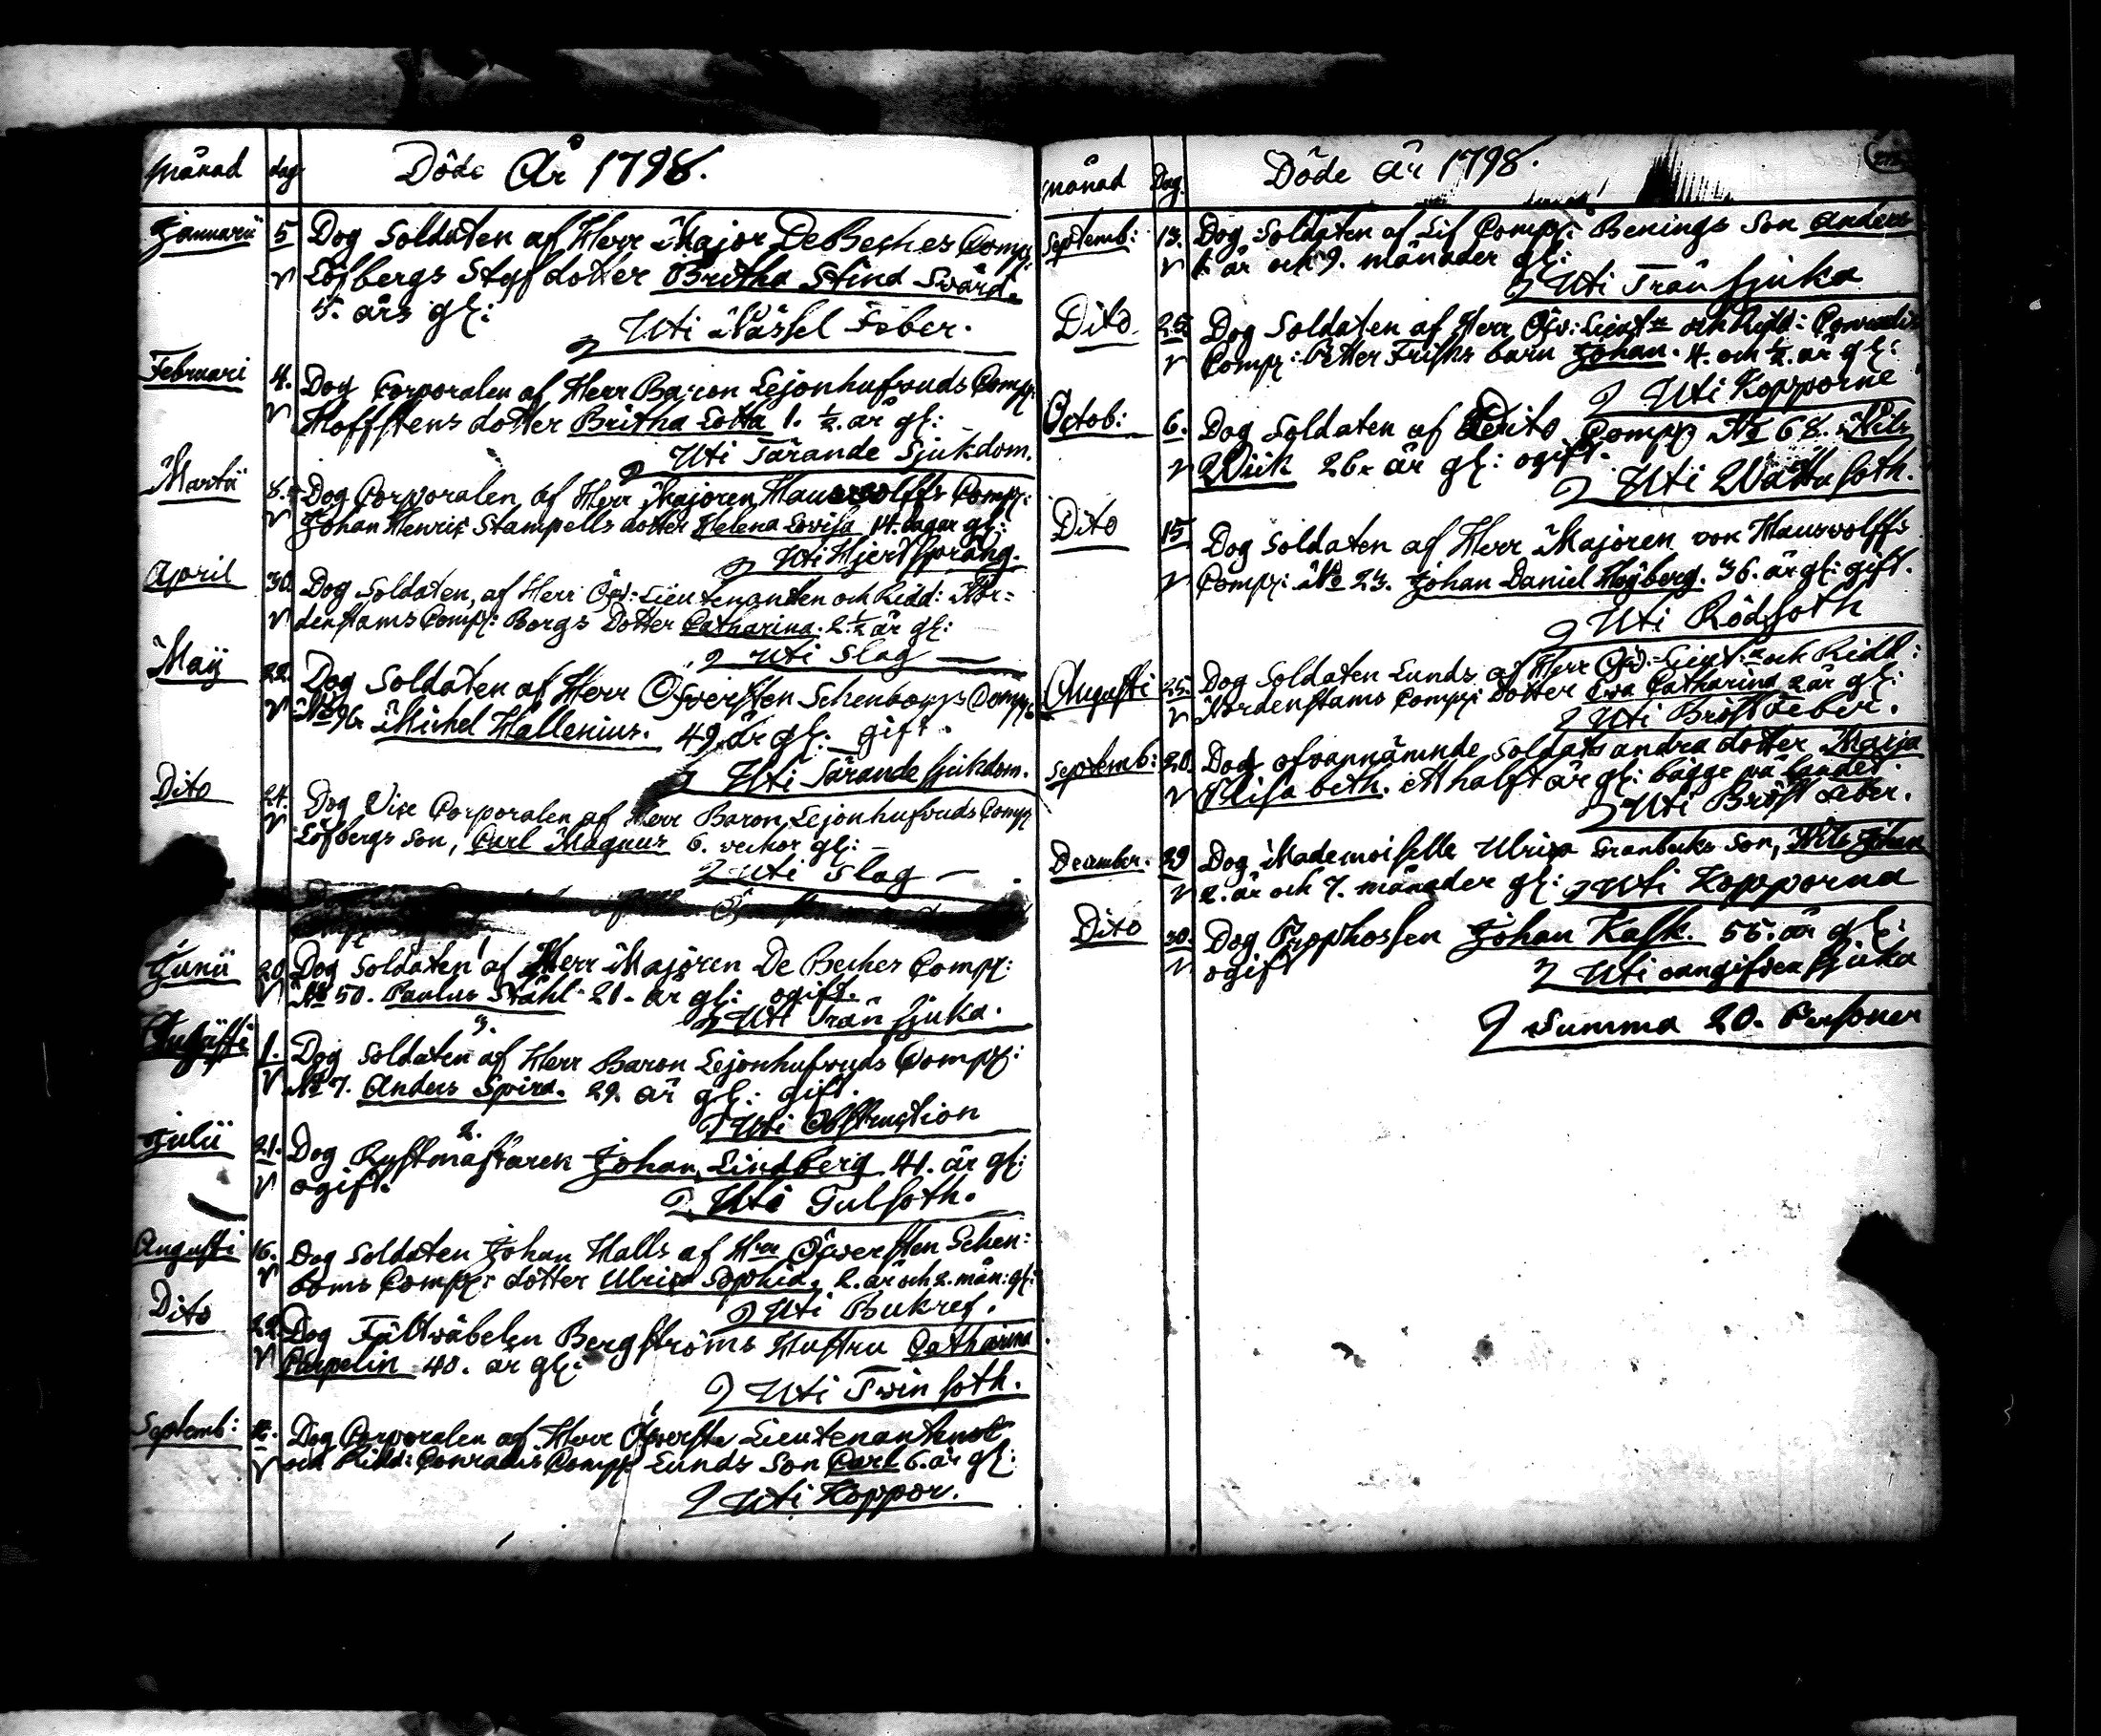 månad dag Döde År 1798.
Januarii 5 Dog Soldaten af Herr Major DeBeches Comp:
Löfbergs Styfdotter Britha Stina Svärd.
5. års gl:
Uti Nässel Feber.
Februari 4. Dog Corporalen af Herr Baron Lejonhufvuds Comp:
Hoffstens dotter Britha Lotta 1. ½. år gl:
Uti Tärande Sjukdom.
Martii 8. Dog Corporalen af Herr Majoren Hauswolffs Comp:
Johan Henric Stampells dotter Helena Lovisa 14. dagar gl:
Uti Hjertsprång.
April 30. Dog Soldaten, af Herr Öfv: Lieutenanten och Ridd: Nor=
denstams Comp: Borgs Dotter Catharina. 2.½ år gl:
Uti Slag
Maij 22. Dog Soldaten af Herr Öfversten Schenboms Comp:
No 96. Michel Hallenius. 49. år gl: gift.
Uti Tärande sjukdom.
Dito 24. Dog Vice Corporalen af Herr Baron Lejonhufvuds Comp
Löfbergs Son, Carl Magnus 6. veckor gl:
Uti Slag
Junii 20. Dog Soldaten af Herr Majoren De Beches Comp:
No 50. Paulus Ståhl 21. år gl: ogift.
Uti Trånsjuka.
3.
1. Dog Soldaten af Herr Baron Lejonhufvuds Comp:
No 7. Anders Spira. 29. år gl: gift.
Uti Obstruction
2.
Julii 21. Dog Rustmästaren Johan Lindberg 41. år gl:
ogift.
Uti Gulsoth.
Augusti 16. Dog Soldaten Johan Halls af Herr Öfversten Schen:
boms Comp: dotter Ulrica Sophia, 2. år och 2. mån: gl:
Uti Bukref.
Dito 22. Dog Fältväbelen Bergströms Hustru Catharina
Carpelin 40. år gl:
Uti Tvinsoth.
Septemb: Dog Corporalen af Herr Öfverste Lieutenantens
och Ridd: Conradis Comp: Lunds Son Carl 6. år gl:
Uti Koppor.
månad Dag. Döde År 1798.
Septemb: 13. Dog Soldaten af Lif Comp: Benings Son Anders
1. år och 9. månader gl:
Uti Trånsjuka
Dito 25 Dog Soldaten af Herr Öfv: Lieut: och Ridd: Conradis
Comp: Petter Frisks barn Johan. 4. och ½. år gl:
Uti Kopporne
Octob: 6. Dog Soldaten af Dito Comp No 68. Nils
Wiik 26. år gl: ogift.
Uti Wattusoth.
Dito 15 Dog Soldaten af Herr Majoren von Hauswolffs
Comp: No 23. Johan Daniel Högberg. 36. år gl: gift.
Uti Rödsoth
Augusti 25. Dog Soldaten Lunds af Herr Öfv: Lieut: och Ridd:
Nordenstams Comp: dotter Eva Catharina 2 år gl:
Uti Bröst Feber.
Septemb: 20. Dog ofvannämnde Soldats andra dotter Maria
Elisabeth. ett halft år gl: bägge på landet.
Uti Bröst Feber.
December. 29 Dog Mademoiselle Ulrica Son, Nils Johan
2. år och 7. månader gl: Uti Kopporna
Dito 30. Dog Prophossen Johan Kask. 55. år gl:
ogift
Uti oangifven sjuka
Summa 20. Personer